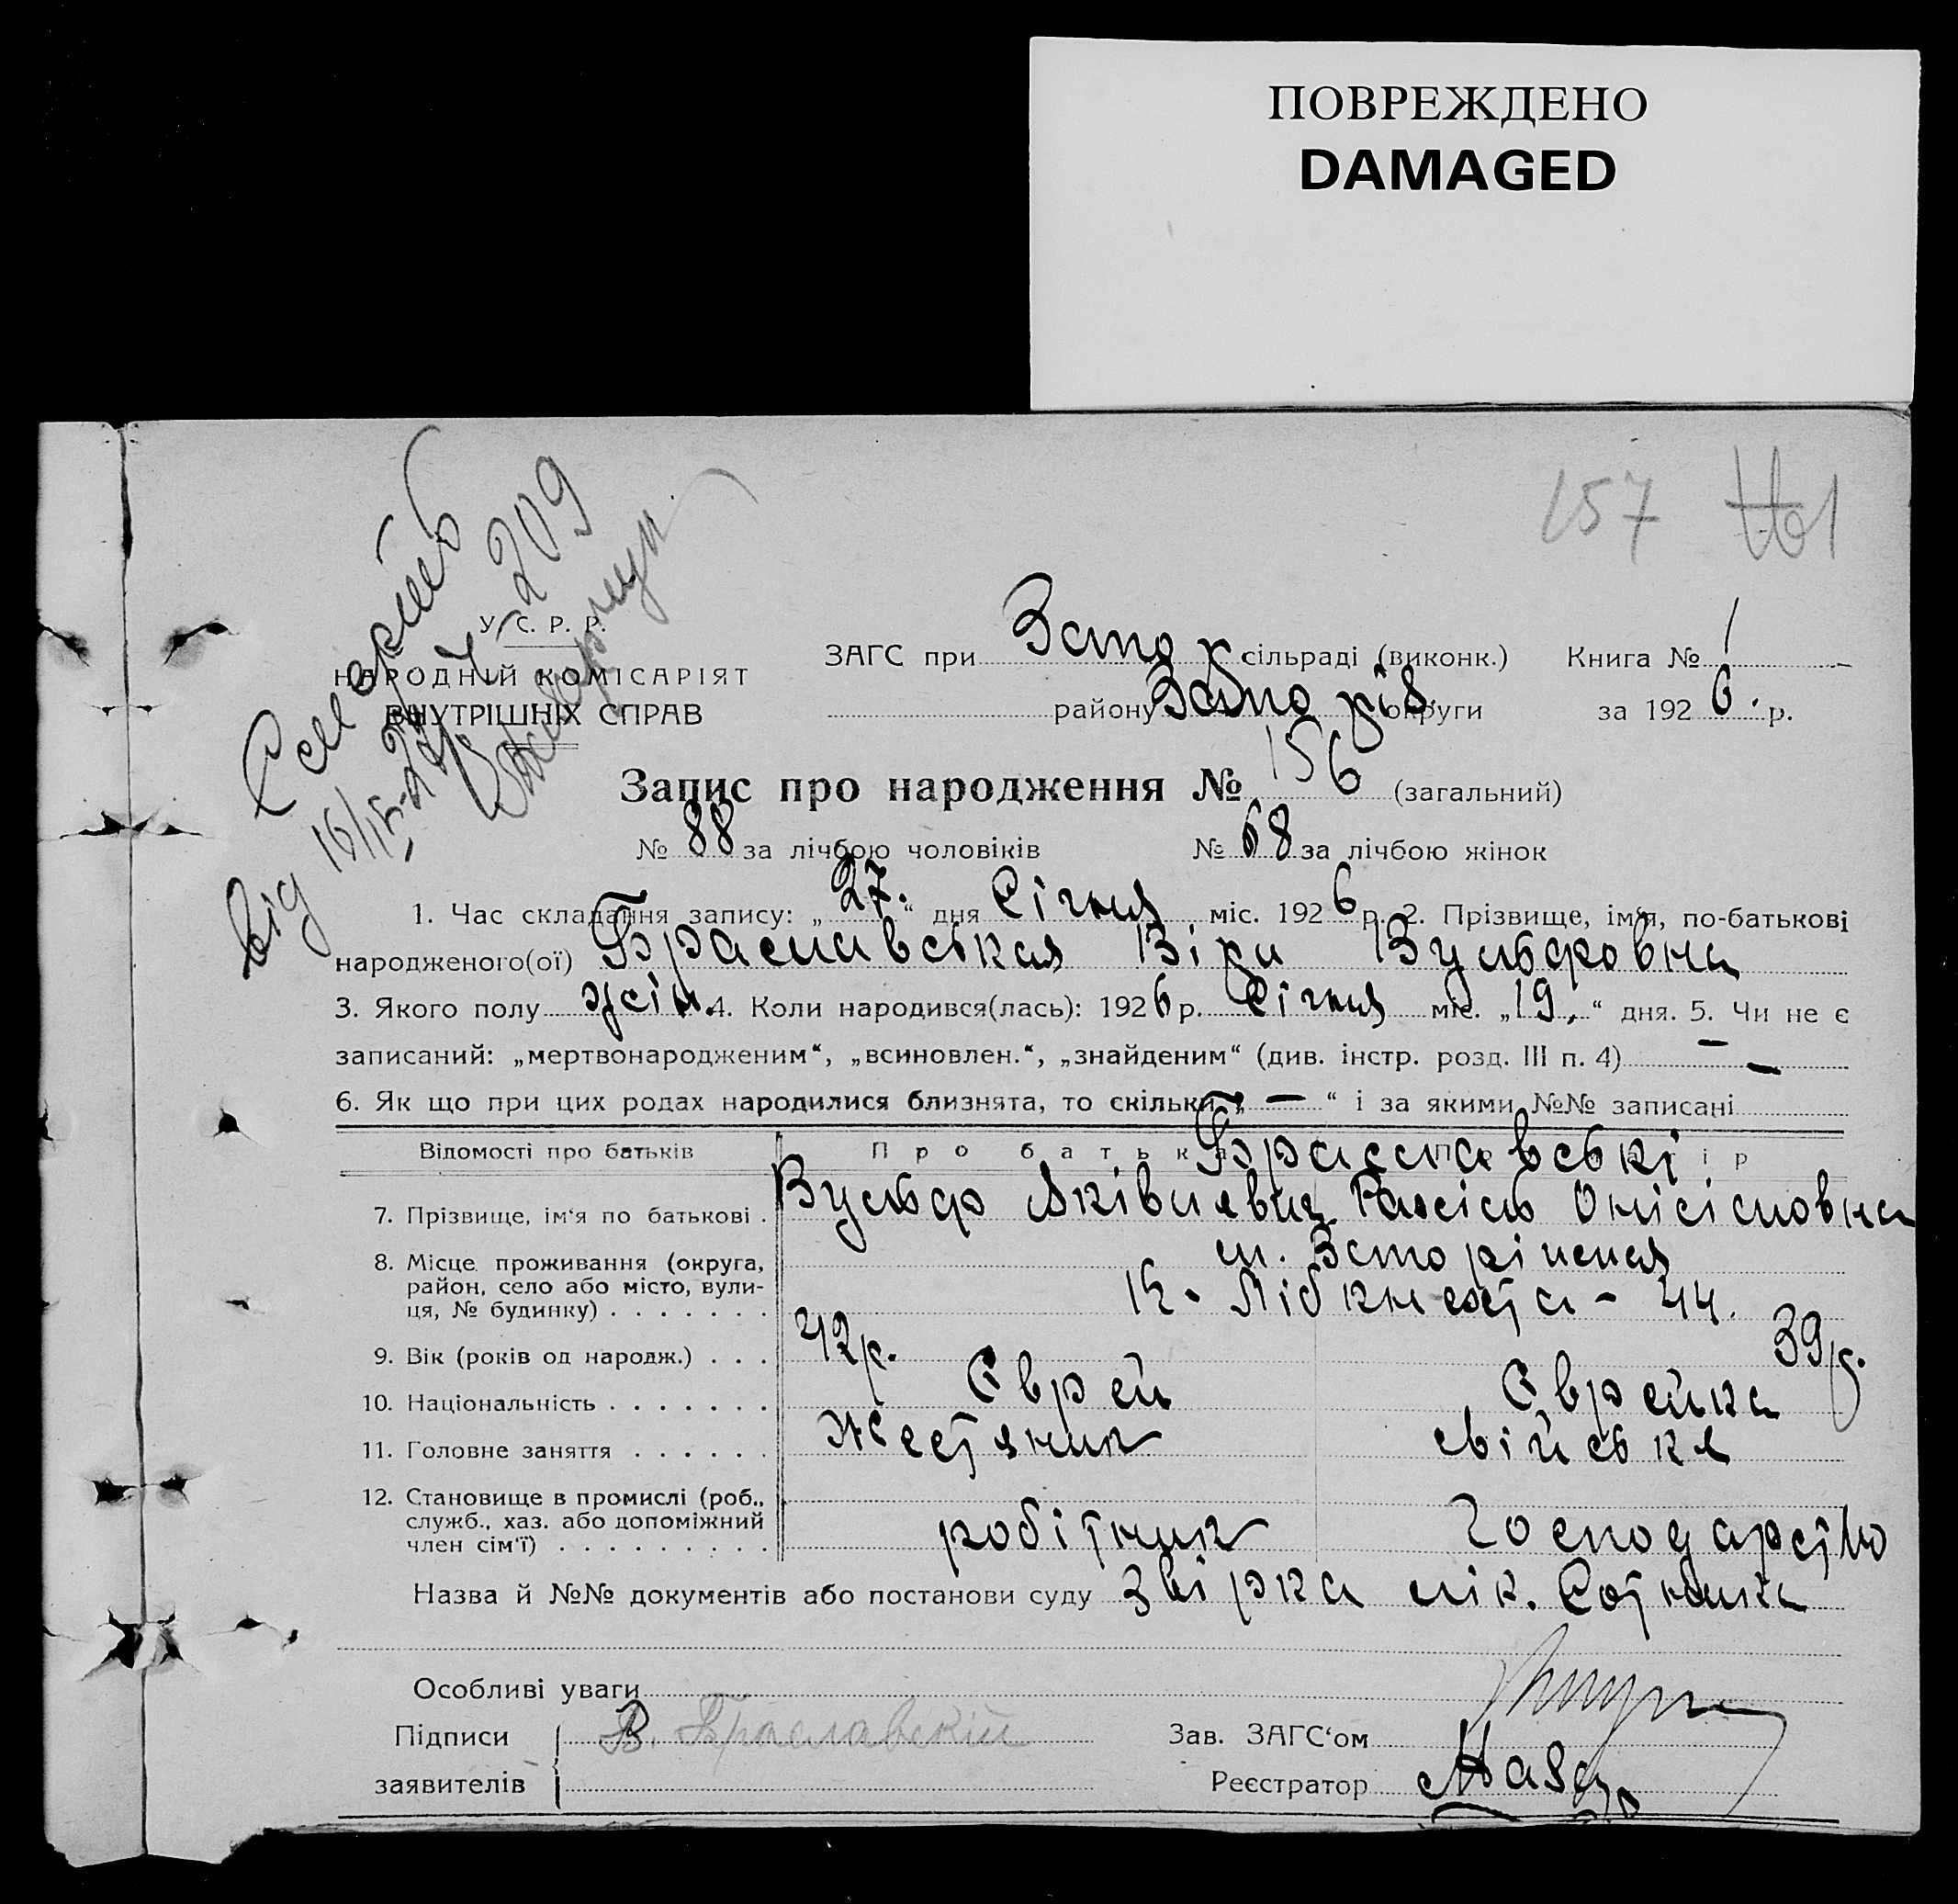 ПОВРЕЖДЕНО
DAMAGED
157
209
У. С. Р. Р.
НАРОДНІЙ КОМІСАРІЯТ
ВНУТРІШНІХ СПРАВ
від 16/
ЗАГС при Запор сільраді (виконк.) Книга № 1
району Запоріз. округи за 1926.р.
Запис про народження № 156 (загальний)
№ 88 за лічбою чоловіків № 68 за лічбою жінок
1. Час складання запису: „27.“ дня Січня міс. 1926 р. 2. Прізвище, ім'я, по-батькові
народженого(ої) Браславськая Віра Вульфовна
3. Якого полу жін. 4. Коли народився(лась): 1926 р. Січня міс. „19.“ дня. 5. Чи не є
записаний: „мертвонародженим“, „всиновлен.“, „знайденим“ (див. інстр. розд. III п. 4) —
6. Як що при цих родах народилися близнята, то скільки „—“ і за якими №№ записані
Відомості про батьків Про батька Браславські
7. Прізвище, ім'я по батькові . Вульф Яківлевич
8. Місце проживання (округа, район, село або місто, вулиця, № будинку) . . . . . . . м. Запоріжжя
К. Лібкнехта - 44.
9. Вік (років од народж.) . . . 42р. 39р.
10. Національність . . . . . . . Єврей Єврейка
11. Головне заняття . . . . . . Жестяник свійське
12. Становище в промислі (роб., служб., хаз. або допоміжний член сім'ї) . . . . . . . . . робітник господарство
Назва й №№ документів або постанови суду звірка лік. Сотника
Особливі уваги
Підписи заявителів В. Браславскій
Зав. ЗАГС'ом
Реєстратор